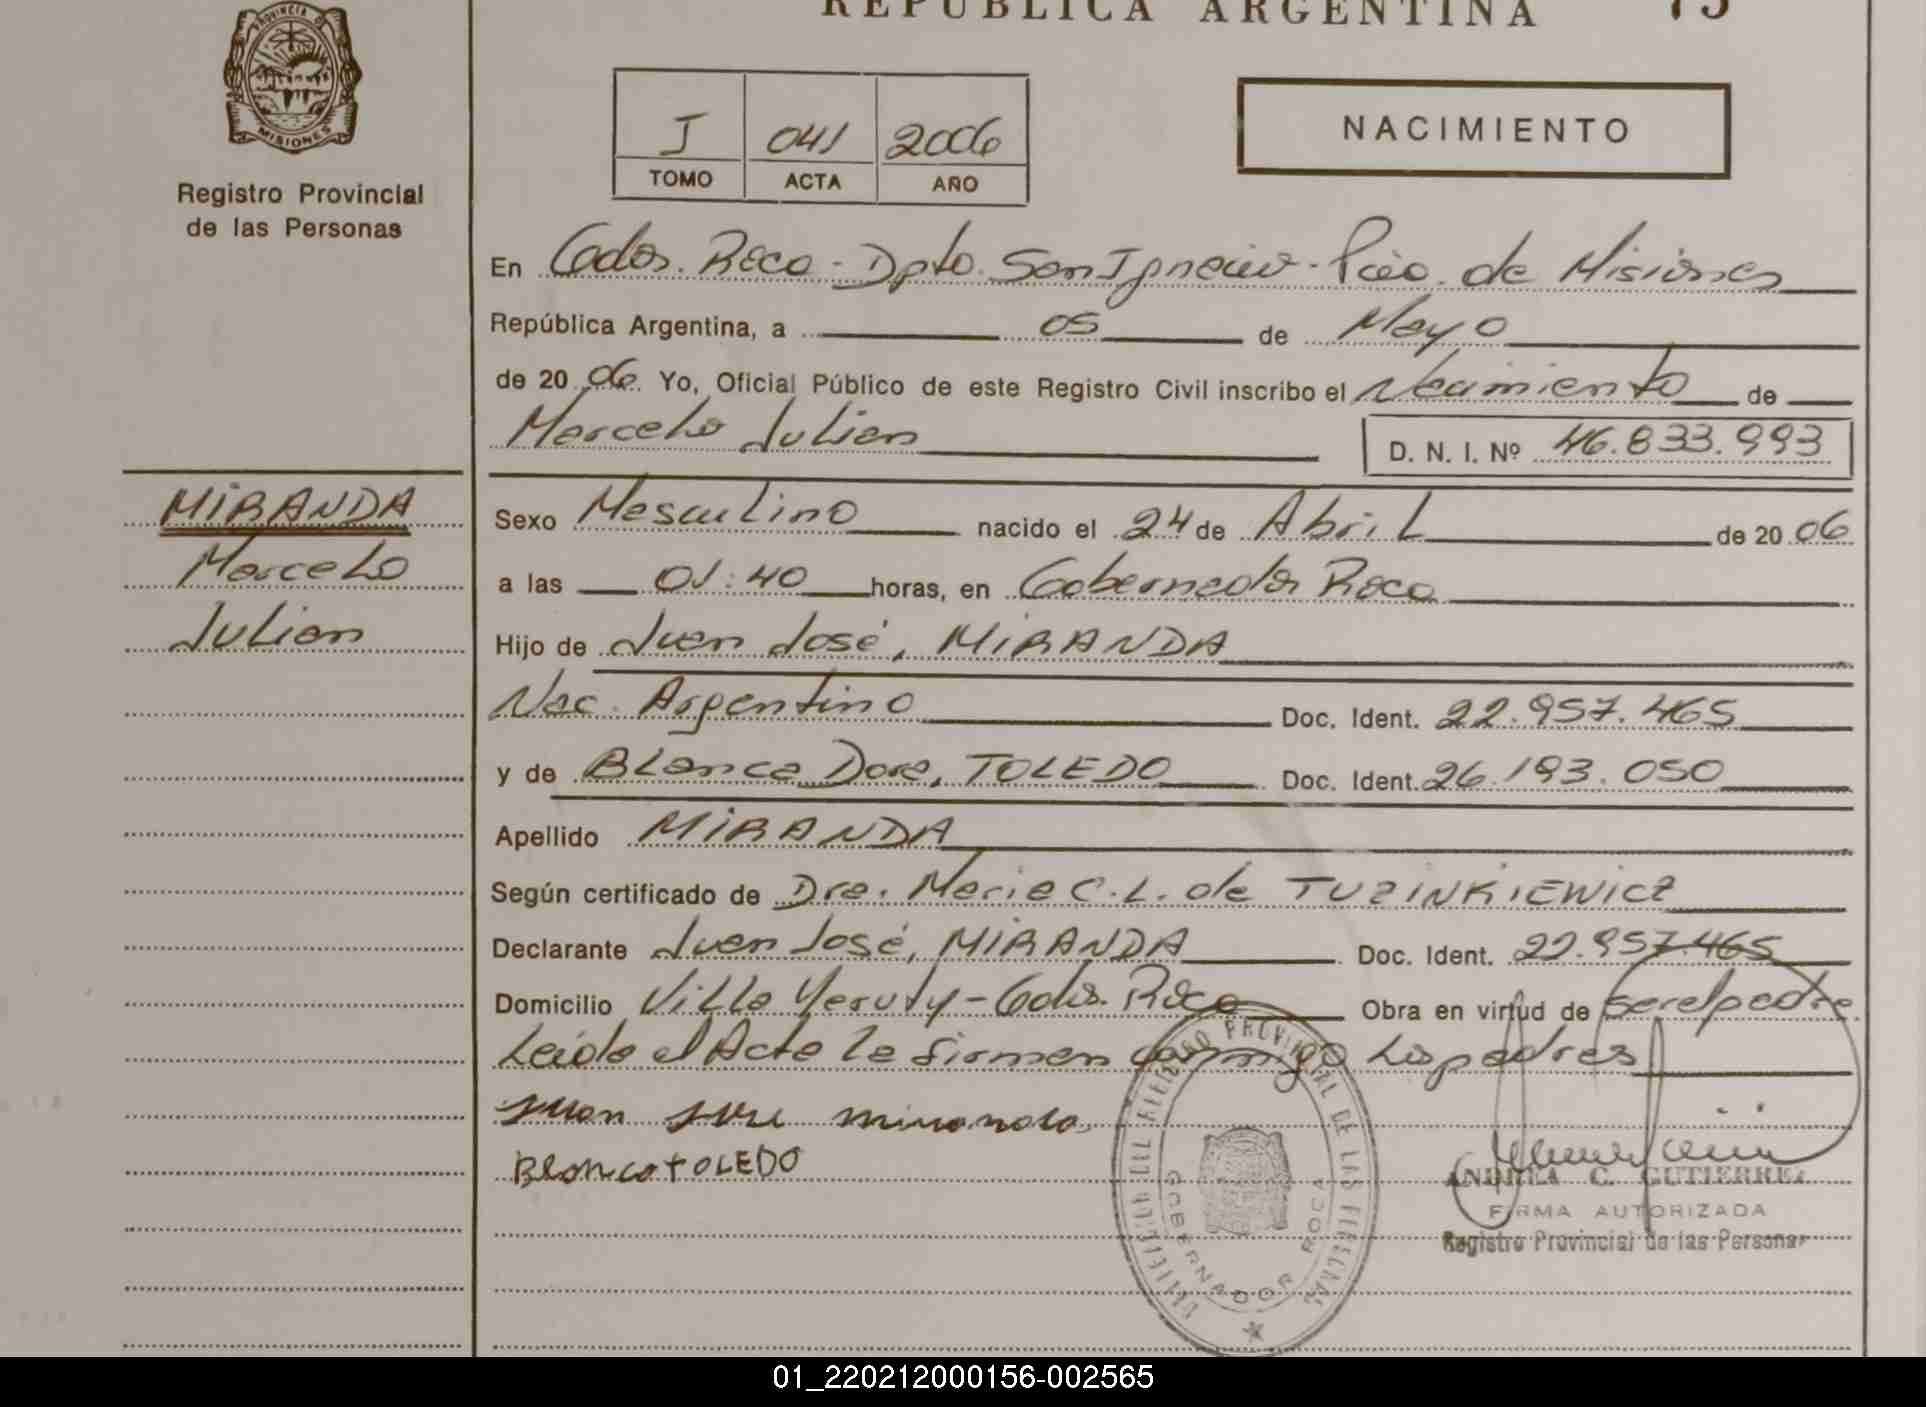 REPUBLICA ARGENTINA 75
PROVINCIA DE MISIONES
Registro Provincial
de las Personas
I 041 2006
TOMO ACTA AÑO
NACIMIENTO
En Gdor. Roca - Dpto. San Ignacio - Pcia. de Misiones
República Argentina, a 05 de Mayo
de 20 06 Yo, Oficial Público de este Registro Civil inscribo el Nacimiento de
Marcelo Julian D. N. I. Nº 46.833.993
MIRANDA
Marcelo
Julian
Sexo Masculino nacido el 24 de Abril de 20 06
a las 01:40 horas, en Gobernador Roca
Hijo de Juan José, MIRANDA
Nac. Argentino Doc. Ident. 22.957.465
y de Blanca Dora, TOLEDO Doc. Ident. 26.193.050
Apellido MIRANDA
Según certificado de Dra. Maria C. L. de TUZINKIEWICZ
Declarante Juan José, MIRANDA Doc. Ident. 22.957.465
Domicilio Villa Yeruty - Gdor. Roca Obra en virtud de ser el padre
Leída el Acta la firman conmigo los padres
Juan José miranda
Blanca TOLEDO
DELEGACION DEL REGISTRO PROVINCIAL DE LAS PERSONAS
GOBERNADOR ROCA
ANDREA C. GUTIERREZ
FIRMA AUTORIZADA
Registro Provincial de las Personas
01_220212000156-002565